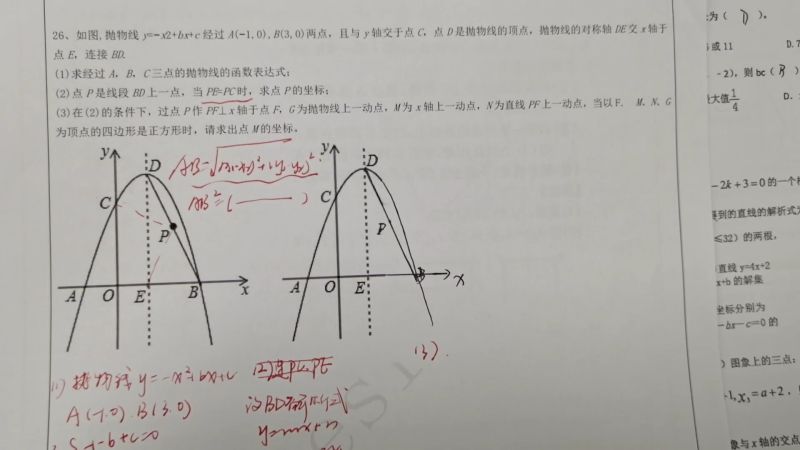 26、如图,抛物线 y=-x2+bx+c 经过 A(-1,0),B(3,0)两点，且与 y 轴交于点 C，点 D 是抛物线的顶点，抛物线的对称轴 DE 交 x 轴于
点 E，连接 BD.
(1)求经过 A，B，C 三点的抛物线的函数表达式;
(2)点 P 是线段 BD 上一点，当 PE=PC 时，求点 P 的坐标;
(3)在(2)的条件下，过点 P 作 PF⊥x 轴于点 F，G 为抛物线上一动点，M 为 x 轴上一动点，N 为直线 PF 上一动点，当以 F、M、N、G
为顶点的四边形是正方形时，请求出点 M 的坐标.
y
D
C
P
A
O
E
B
x
AB²=(
)
y
D
C
P
A
O
E
B
x
(3).
(1) 抛物线 y=-x²+bx+c
A(-1,0).B(3,0)
-b+c=0
(2)
设BD解析式
y=mx+n
为(
)。
或 11
D.7
-2)，则 bc(
B
)
最大值
1/4
D.
-2k+3=0 的一个
得到的直线的解析式
≤32）的两根，
直线 y=4x+2
x+b 的解集
坐标分别为
-bx-c=0 的
）图象上的三点:
-1,x₃=a+2，
象与 x 轴的交点